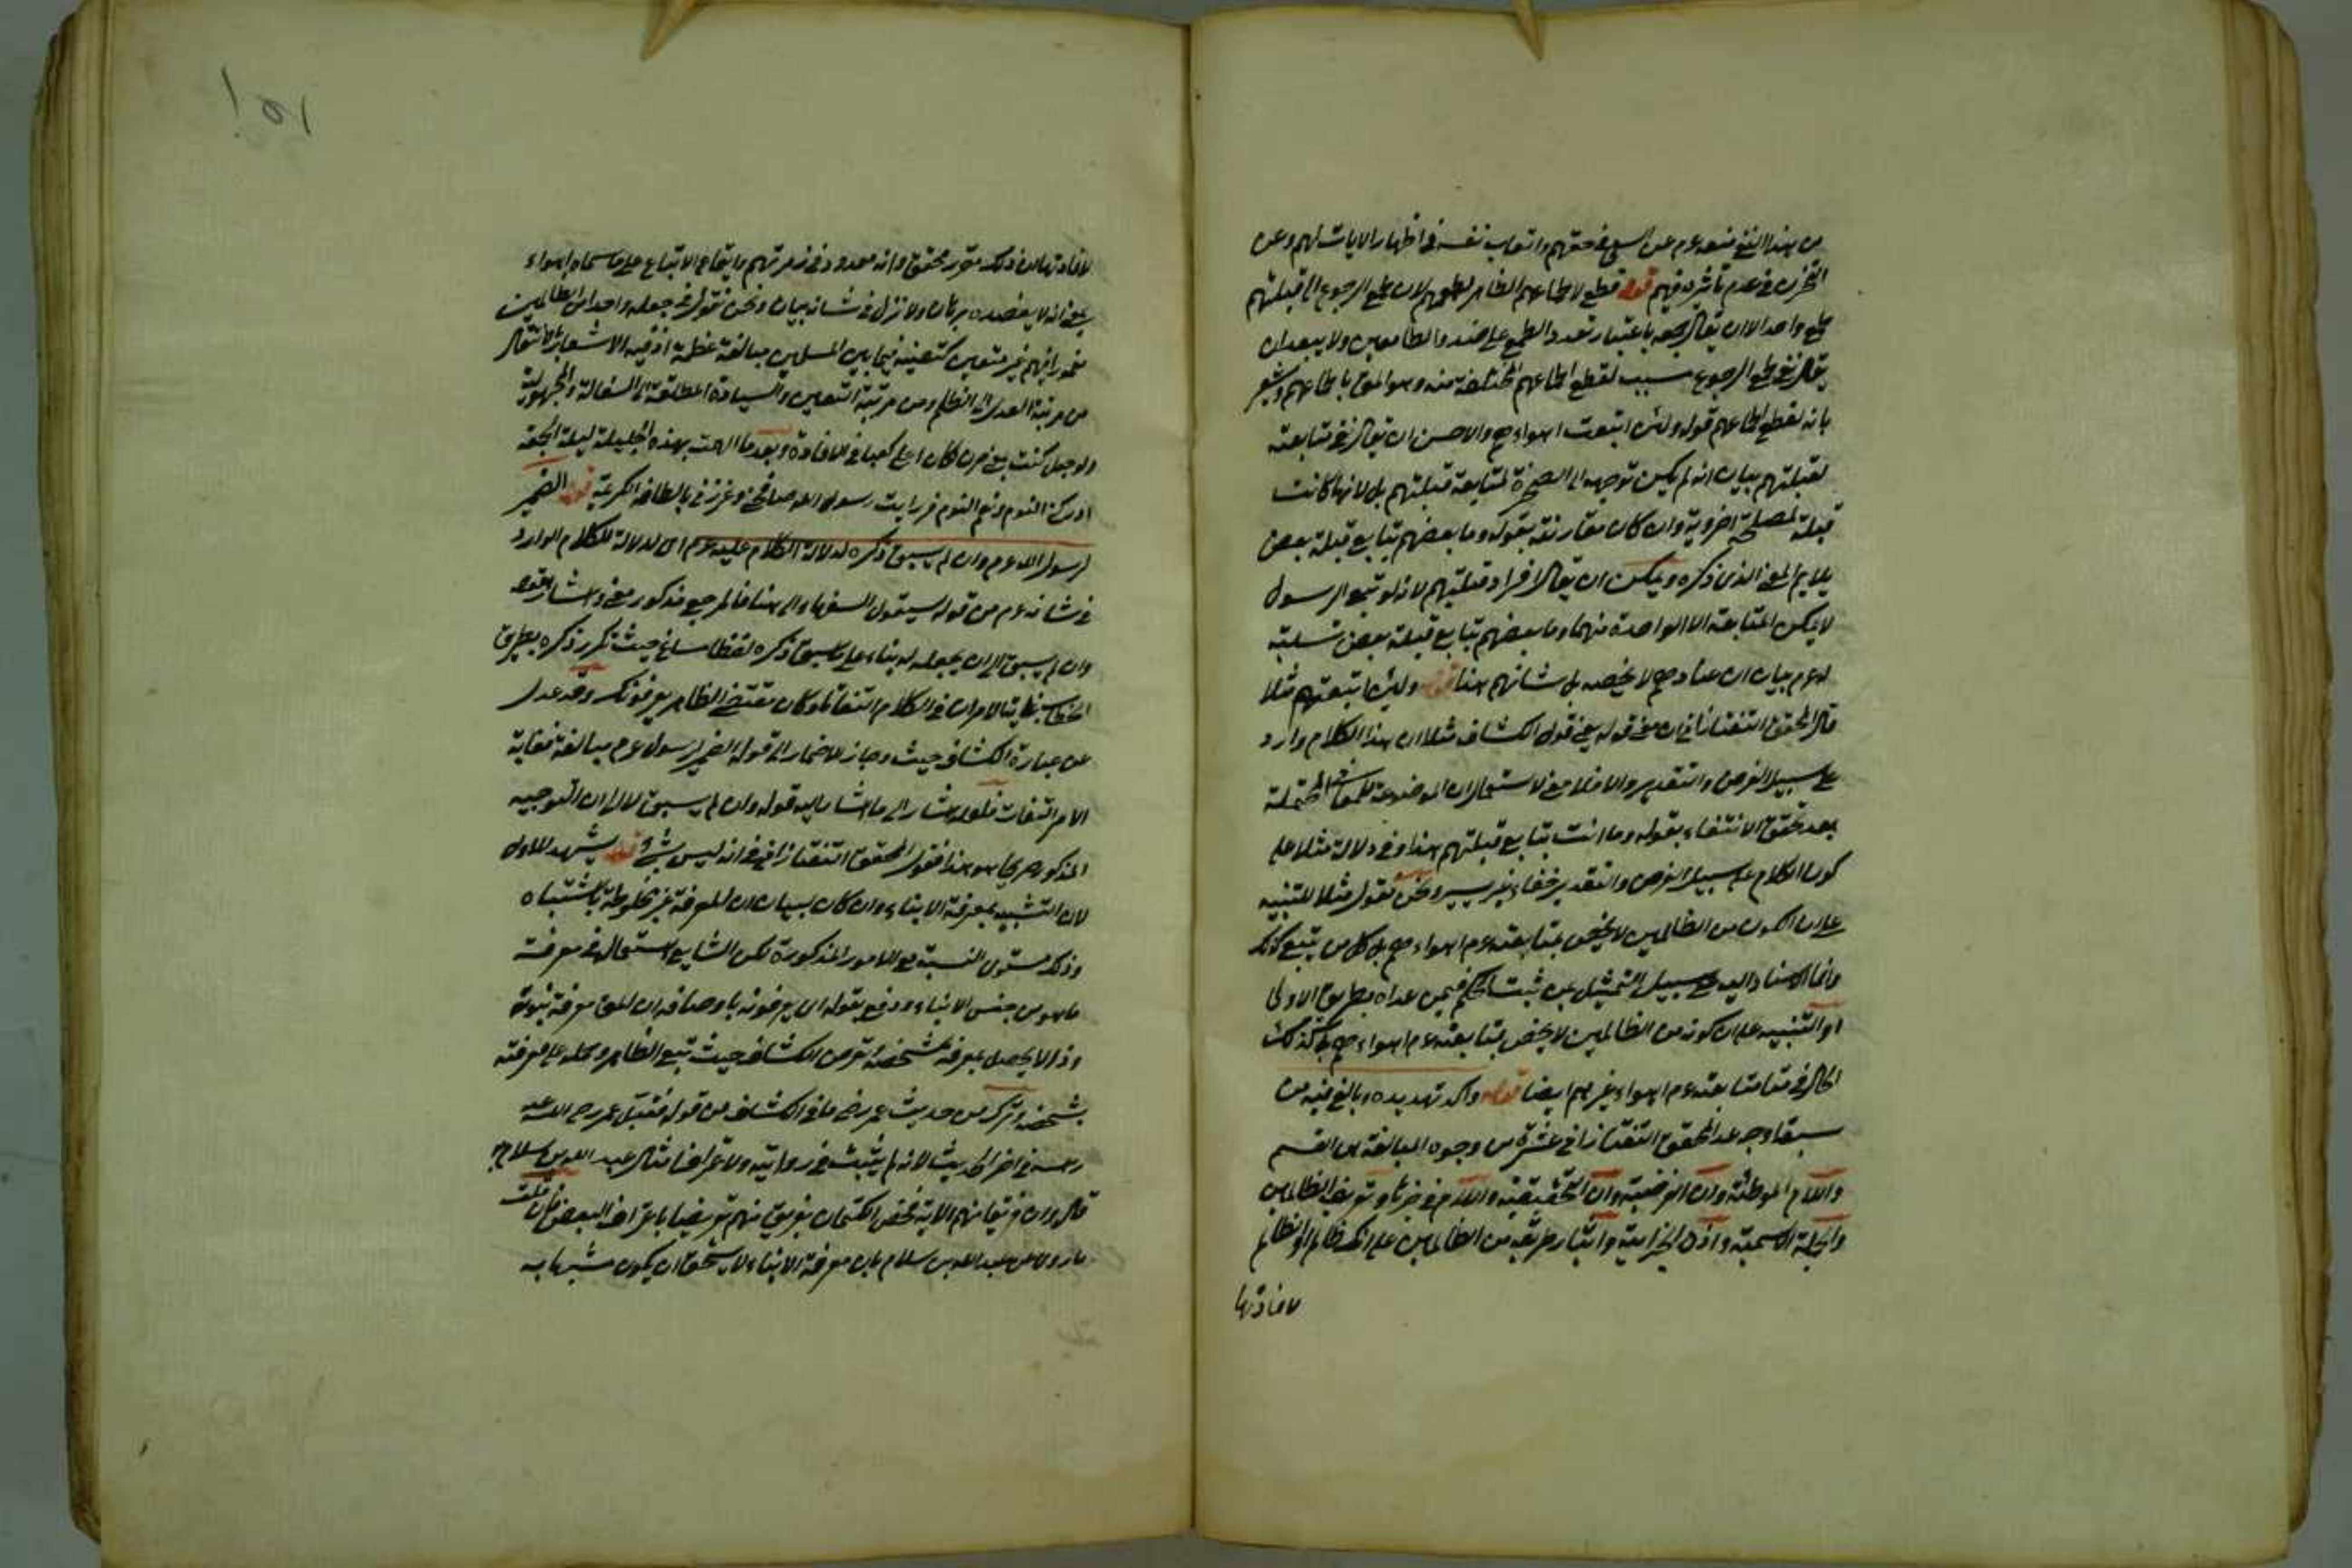 من هذا النفي منعه عم عن السعي في حقهم واتعاب نفسه في اظهار الايات لهم وعن
التحزن في عدم تأثيره فيهم قوله قطع لاطماعهم الظاهر لطمعهم لان طمع الرجوع الى قبلتهم
طمع واحد الا ان يقال جمعه باعتبار تعدد الطمع على عدد الطامعين ولا يبعد ان
يقال نفي طمع الرجوع سبب لقطع اطماعهم المختلفة منه وهو المعنى باطماعهم ويشعر
بانه لقطع اطماعهم قوله ولئن اتبعت اهواءهم والاحسن ان يقال نفي متابعته
لقبلتهم ببيان انه لم يكن توجهه الى الصخرة لمتابعة قبلتهم بل لانها كانت
قبلة لمصلحة اخروية وان كان مقارنته بقوله وما بعضهم بتابع قبلة بعض
يلايم المعنى الذي ذكره ويمكن ان يقال لافراد قبلتهم لانه لو تبع الرسول
لا يمكن المتابعة الا الواحدة منهما وما بعضهم بتابع قبلة بعض تسلية
له عم ببيان ان عنادهم لا يخصه بل شانهم هذا قوله ولئن اتبعتهم مثلا
قال المحقق التفتازاني ان معنى قوله يعني قول الكشاف مثلا ان هذا الكلام وارد
على سبيل الفرض والتقدير والا فلا معنى لاستعمال ان الموضوعة للمعاني المحتملة
بعد تحقق الانتفاء بقوله وما انت بتابع قبلتهم هذا وفي دلالة مثلا على
كون الكلام على سبيل الفرض والتقدير خفاء غير يسير ونحن نقول مثلا للتنبيه
على ان الكون من الظالمين لا يختص بمتابعته عم اهواءهم بل كل من يتبع كذلك
وانما الاسناد اليه على سبيل التمثيل عن ثبت الحكم فيمن عداه بطريق الاولى
او التنبيه على ان كونه من الظالمين لا يخص بمتابعته عم اهواءهم بل كذلك
الحال في متابعته عم اهواء غيرهم ايضا قوله واكد تهديده وبالغ فيه من
سبعة اوجه عد المحقق التفتازاني عشرة من وجوه المبالغة من القسم
واللام الموطئة وان الفرضية وان التحقيقية واللام في خبرها وتعريف الظالمين
والجملة الاسمية واذن الجزائية وايثار طريقة من الظالمين على انك ظالم او الظالم
لافادتها
لافادتها ان ذلك مقرر محقق وانه معدود في زمرتهم بايقاع الاتباع على ما سماه اهواء
يعني انه لا يعضده برهان ولا نزل في شانه بيان ونحن نقول في جعله واحدا من الظالمين
مغمورا فيهم غير متعين كتعينه فيما بين المسلمين مبالغة عظيمة اذ فيه الاشعار بالانتقال
من مرتبة العدل الى الظلم ومن مرتبة التعين والسيادة المطلقة الى السفالة والمجهولية
ولو جعل كنت بمعنى صرت لكان اعلى كعبا في الافادة وبعد ما الهمت بهذه الجليلة ليلة الجمعة
ادركني النوم ونعم النوم فرايت رسول الله صافحني وعززني بالطافه الكريمة قوله الضمير
لرسول الله عم وان لم يسبق ذكره لدلالة الكلام عليه عم اي لدلالة الكلام الوارد
في شانه عم من قوله سيقول السفهاء الى هنا فالمرجع مذكور معنى واشار بقوله
وان لم يسبق الى ان يجعله له بناء على ما سبق ذكره لفظا مساغ حيث تكرر ذكره بطريق
الخطاب غاية الامر ان في الكلام التفاتا وكان مقتضى الظاهر يعرفونك وقد عدل
عن عبارة الكشاف حيث وجاز الاضمار الى قوله الضمير لرسول عم مبالغة مغاية
الامر التفات فلعله اشار الى ما اشار اليه قوله وان لم يسبق لا الى ان التوجيه
المذكور صريحا هو هذا فقول المحقق التفتازاني في انه ليس بشئ قوله يشهد للاول
لان التشبيه بمعرفة الابناء وان كان لبيان ان المعرفة غير مخلوطة باشتباه
وذلك مستوي النسبة مع الامور المذكورة لكن الشايع استعماله في معرفة
ما هو من جنس الابناء ودفع بقوله اي يعرفونه باوصافه ان المعنى معرفة نبوته
وذا لا يحصل بمعرفة شخصه وتعرض الكشاف حيث تبع الظاهر وحمله على معرفته
بشخصه وترك من حديث عمر رضى ما في الكشاف من قوله فقبل عمر رضى الله عنه
راسه في اخر الحديث لانه لم يثبت في رواية ولا عرافا مثال عبد الله بن سلام
قال وان فريقا منهم الاية تخص الكتمان بفريق منهم تعريضا باعتراف البعض فان قلت
ما روي عن عبد الله بن سلام بان معرفة الابناء لا يستحق ان يكون مشبها به